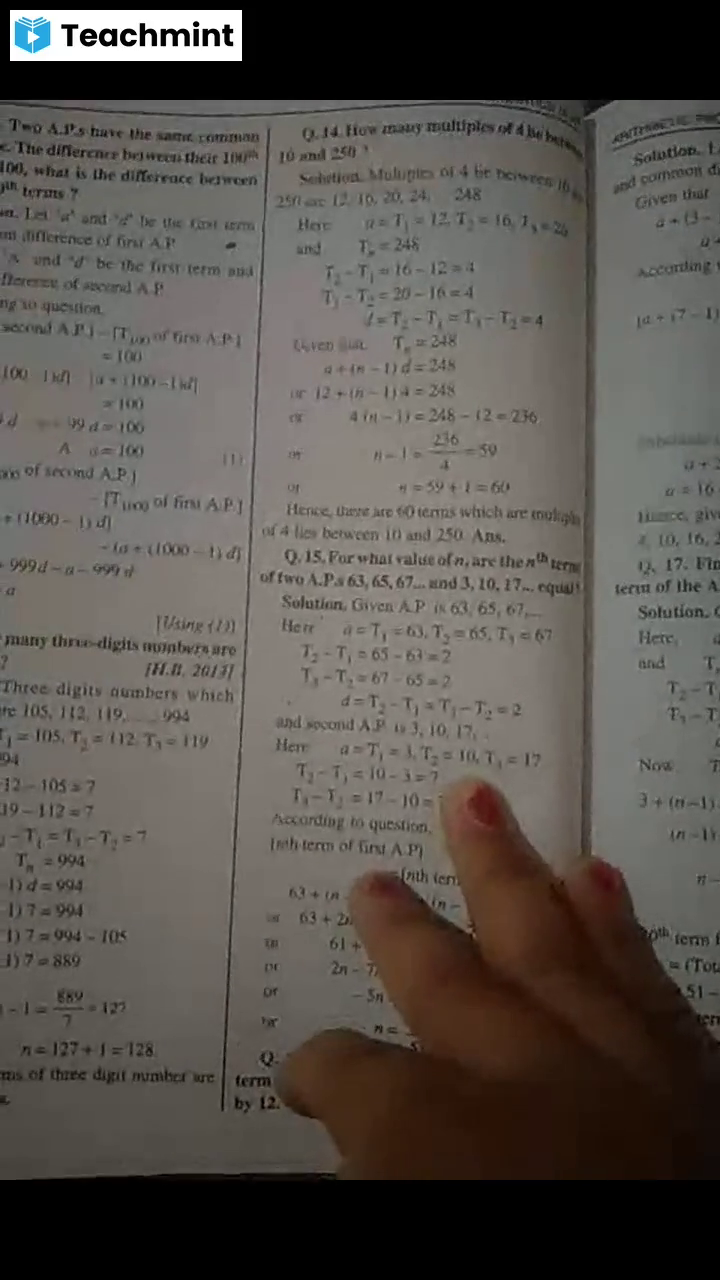 Teachmint
Two A.P.s have the same common
The difference between their 100th
100, what is the difference between
terms ?
Let 'a' and 'd' be the first term
difference of first A.P.
'A' and 'd' be the first term and
difference of second A.P.
ng to question,
second A.P.] – [T100 of first A.P.]
= 100
100 – 1)d] [a + (100 – 1)d]
= 100
99 d = 100
A a = 100
(1)
of second A.P.]
– [T1000 of first A.P.]
+ (1000 – 1) d]
– [a + (1000 – 1) d]
+ 999d – a – 999 d
a
[Using (1)]
many three-digits numbers are
? [H.B. 2013]
Three digits numbers which
re 105, 112, 119, ... 994
T1 = 105, T2 = 112, T3 = 119
994
12 – 105 = 7
19 – 112 = 7
– T1 = T3 – T2 = 7
Tn = 994
1) d = 994
1) 7 = 994
1) 7 = 994 – 105
1) 7 = 889
– 1 = 889/7 = 127
n = 127 + 1 = 128
ms of three digit number are
Q. 14. How many multiples of 4 lie between
10 and 250 ?
Solution. Multiples of 4 lie between 10
250 are 12, 16, 20, 24, 248
Here a = T1 = 12, T2 = 16, T3 = 20
and Tn = 248
T2 – T1 = 16 – 12 = 4
T3 – T2 = 20 – 16 = 4
d = T2 – T1 = T3 – T2 = 4
Given that Tn = 248
a + (n – 1) d = 248
or 12 + (n – 1) 4 = 248
or 4 (n – 1) = 248 – 12 = 236
or n – 1 = 236/4 = 59
or n = 59 + 1 = 60
Hence, there are 60 terms which are multiples
of 4 lies between 10 and 250. Ans.
Q. 15. For what value of n, are the nth term
of two A.P.s 63, 65, 67... and 3, 10, 17... equal?
Solution. Given A.P. is 63, 65, 67,...
Here a = T1 = 63, T2 = 65, T3 = 67
T2 – T1 = 65 – 63 = 2
T3 – T2 = 67 – 65 = 2
d = T2 – T1 = T3 – T2 = 2
and second A.P. is 3, 10, 17,
Here a = T1 = 3, T2 = 10, T3 = 17
T2 – T1 = 10 – 3 = 7
T3 – T2 = 17 – 10 =
According to question,
[nth term of first A.P]
= [nth term
63 + (n (n –
or 63 + 2n
or 61 +
or 2n – 7
or – 5n
or n =
Q.
term
by 12.
Solution.
and common d
Given that
a + (3 –
According
[a + (7 – 1)
a + 2
a = 16
Hence, give
4, 10, 16, 2
Q. 17. Fin
term of the A.
Solution.
Here,
and T
T2 – T
T3 – T
Now
3 + (n–1)
(n – 1)
n –
term
= (Tot
51 –